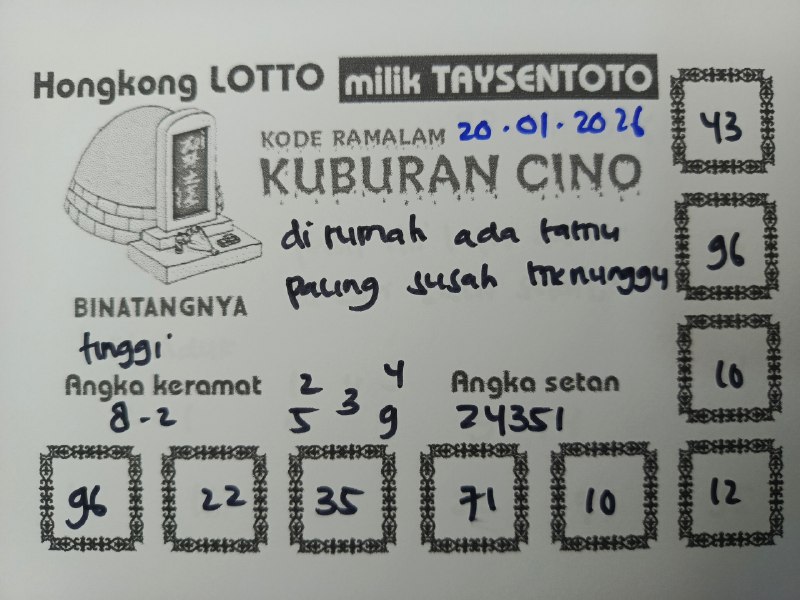 Hongkong LOTTO milik TAYSENTOTO
43
KODE RAMALAM 20.01.2026
KUBURAN CINO
di rumah ada tamu
96
paling susah menunggu
BINATANGNYA
tinggi
10
Angka keramat
2 4
Angka setan
8-2
5 3 9
24351
96 22 35 71 10 12